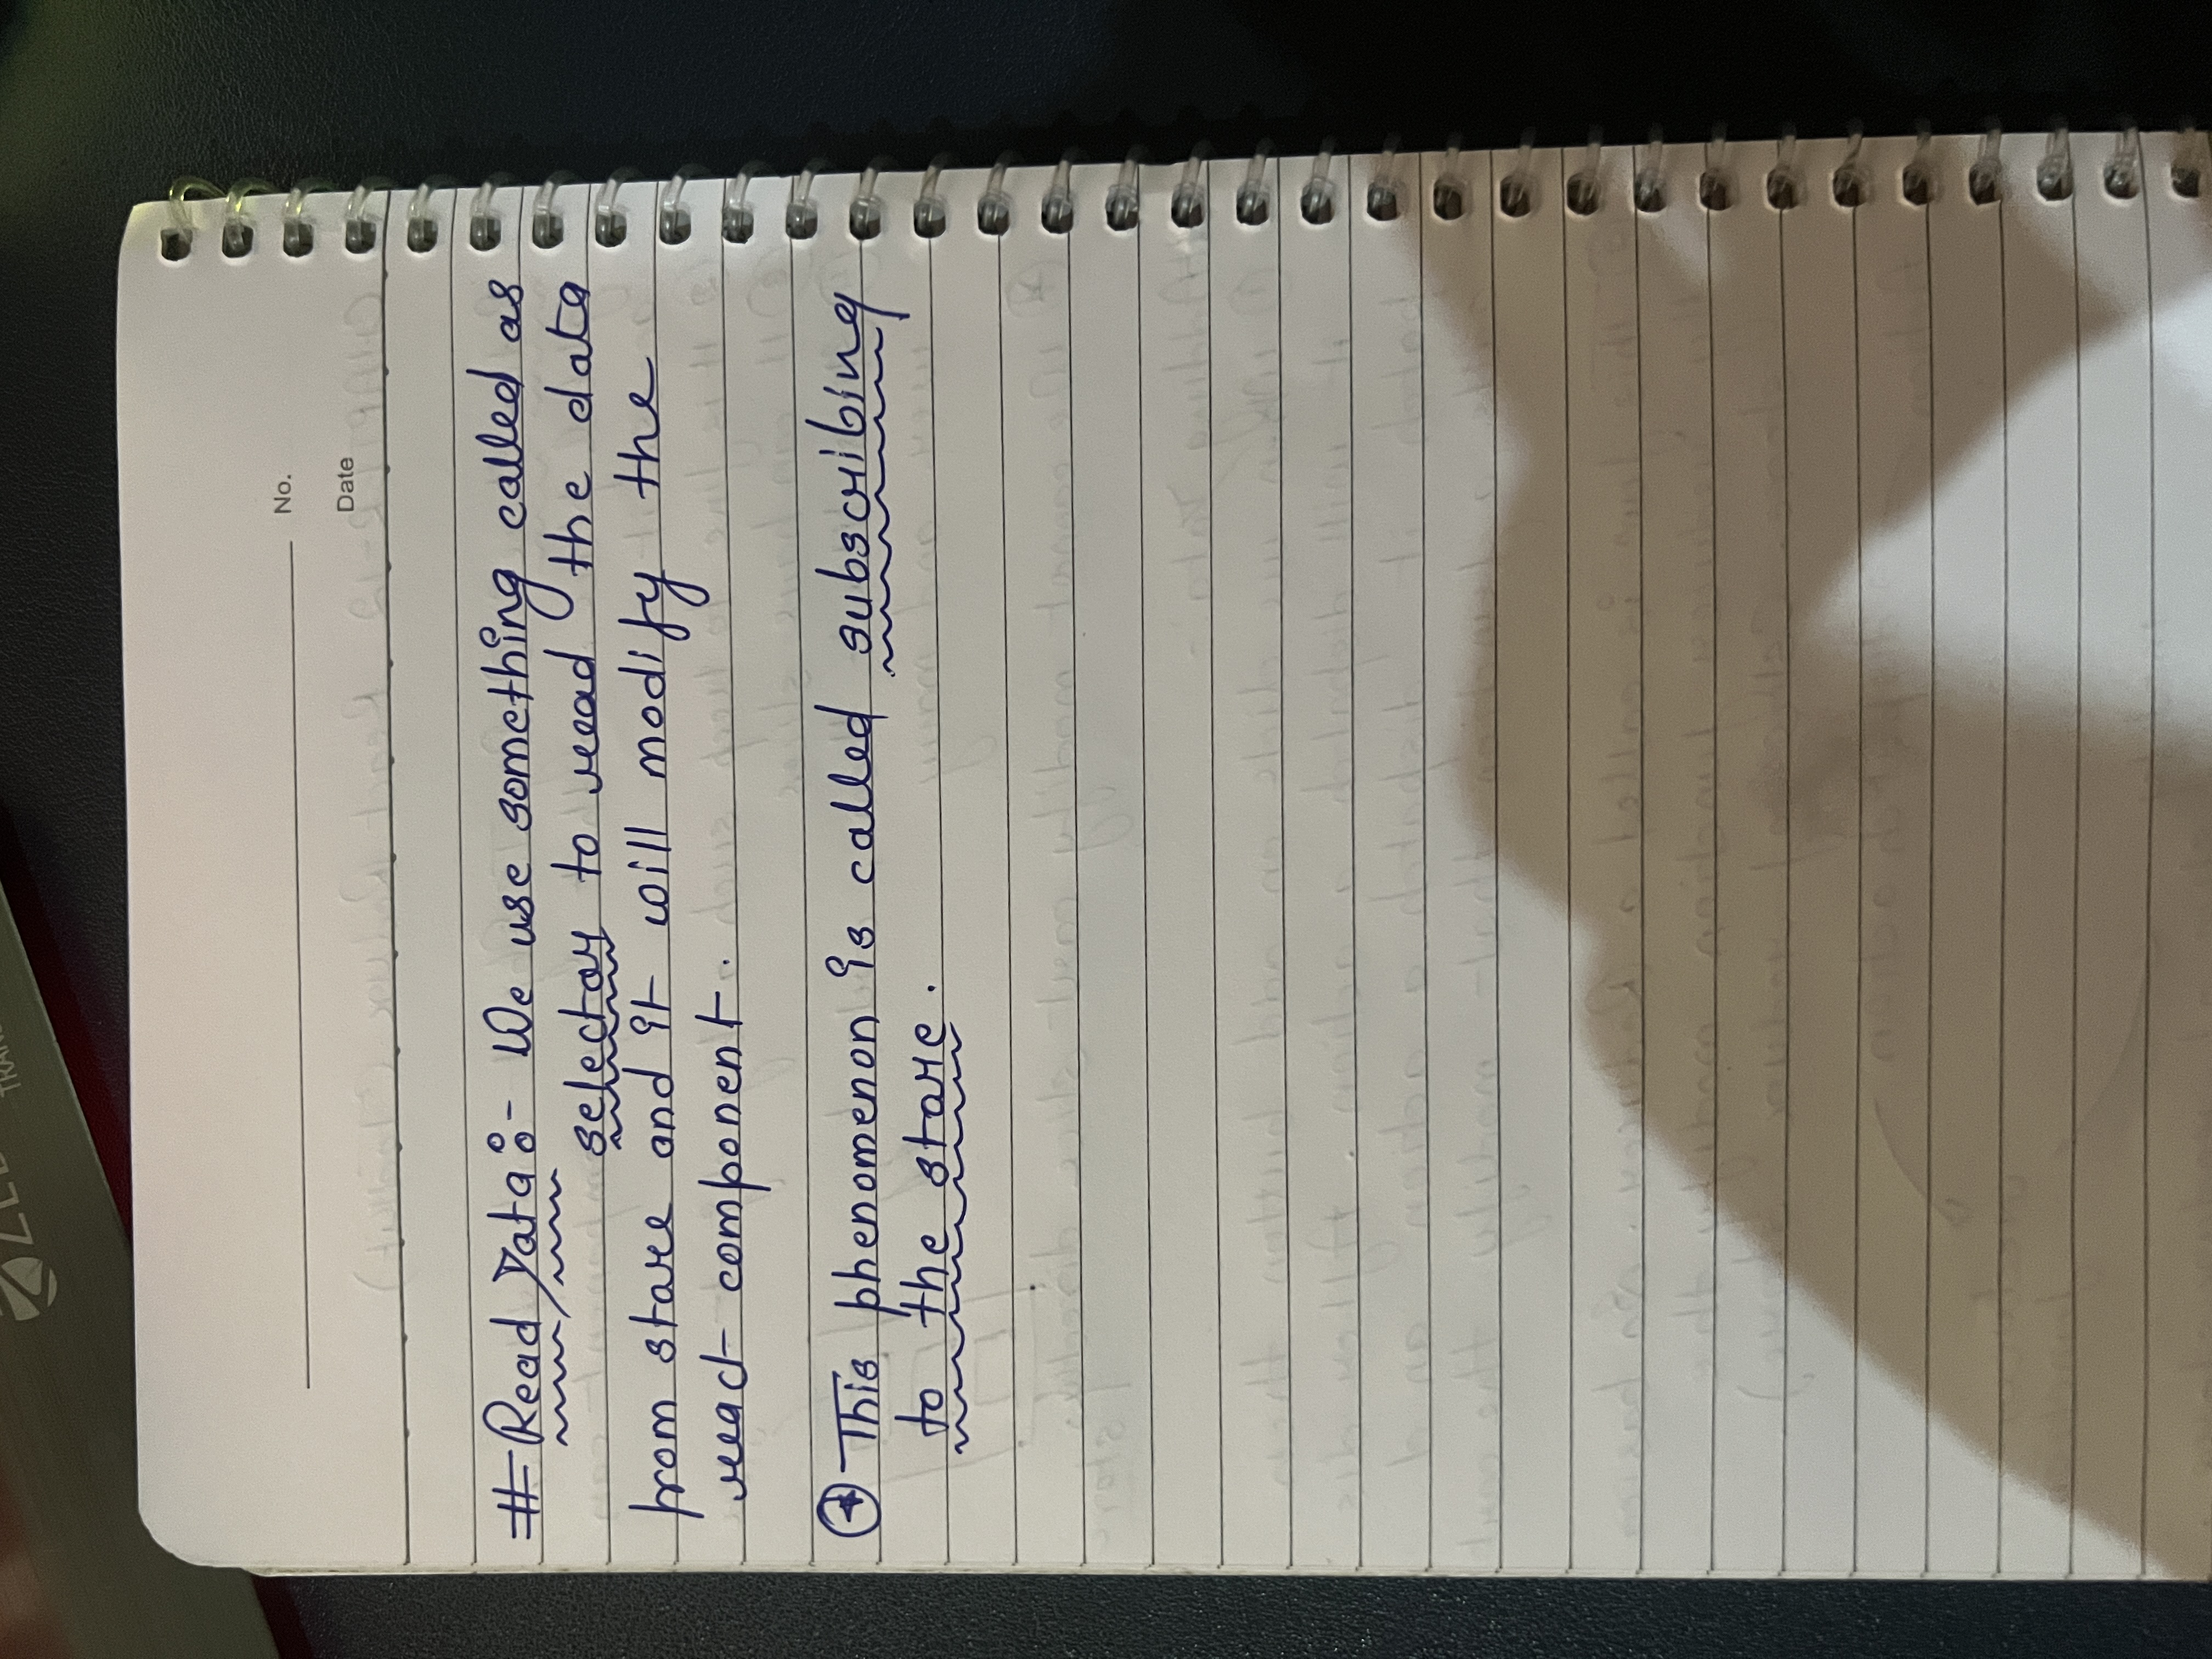 No.
Date
# Read Data :- We use something called as
selector to read the data
from store and it will modify the
react component.
This phenomenon is called subscribing
to the store.